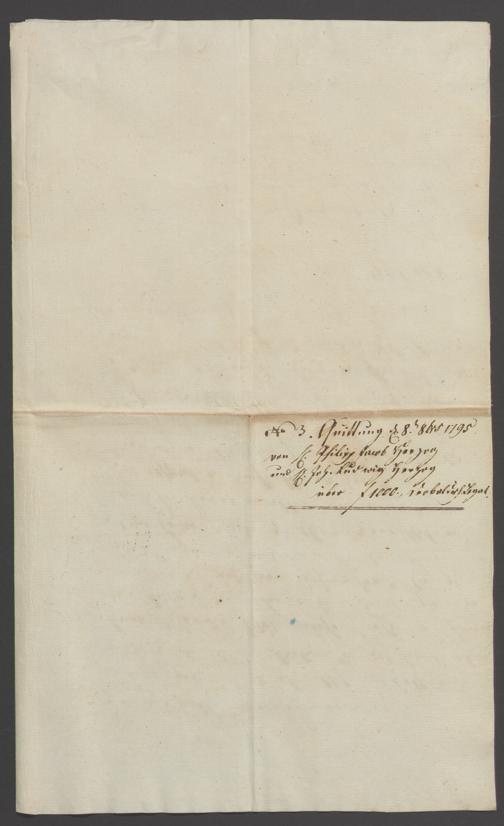 No 3. Quittung d. 8. 8br 1795
von H. Philipp Jacob Herzog
und H. Joh. Ludwig Herzog
über f 1000.,